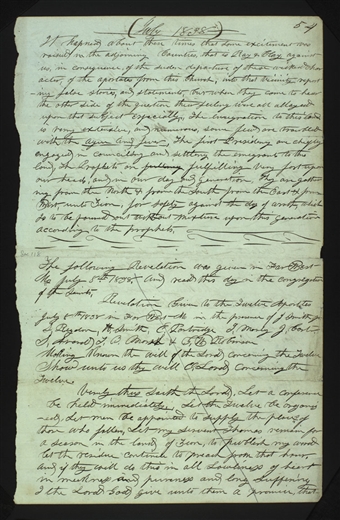 July 1838
54
It happened about these times that some excitement was
raised in the adjoining Counties, that is Ray & Clay, against
us, in consequence of the suden departure of these wicked char-
acters, of the apostates from this Church, into that vicinity report-
ing false stories, and statements, but when they come to hear
the other side of the question their feeling were all allayed
upon that subject especially. The emigration to this Land
is very extensive, and numerous, some few are troubled
with the ague and fever. The first Presidency are chiefly
engaged in counciling, and settling the emigrants to this
land, The prophecies are fulfilling very fast upon
our heads, and in our day and generation, They are gather-
ing from the North & from the South from the East & from
West, unto Zion, for safety against the day of wrath which
is to be poured out without mixture upon this generation
according to the prophets.
The following Revelation was given in Far West
Mo July 8th 1838, and read this day in the congregation
of the Saints
Revelation Given to the Twelve Apostles
July 8th 1838 in Far West Mo in the presence of J Smith jr.
S. Rigdon, H. Smith, E. Partridge, I. Morly, J Carter
S. Avard, T. B. Marsh & G. W. Robinson
Making Known the will of the Lord concerning the Twelve
Show unto us thy will O. Lord concerning the
Twelve.
Verily thus Saith the Lord, Let a conference
be held immediately, Let the Twelve be organi-
sed, Let men be appointed to supply the places of
those who fallen, Let my servent Thomas remain for
a season in the land of Zion, to publish my word
let the residue continue to preach from that hour
and if they will do this in all Lowliness of heart
in meekness and pureness and long suffering
I the Lord God give unto them a promise, that